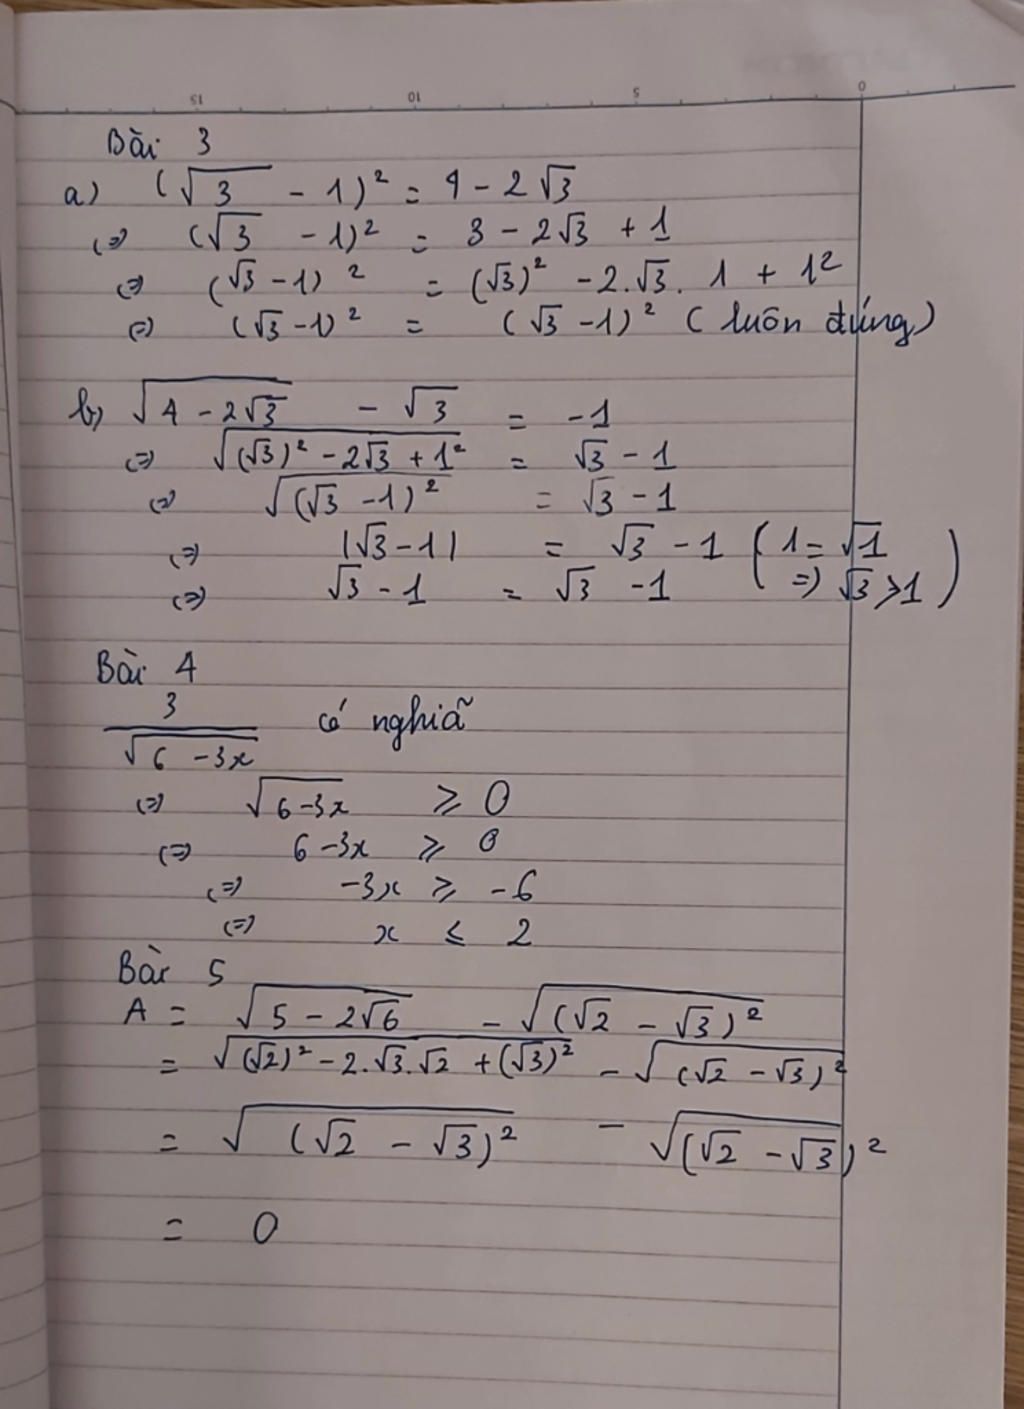 15 10 5 0
Bài 3
a) (√3 - 1)² = 4 - 2√3
(=) (√3 - 1)² = 3 - 2√3 + 1
(=) (√3 - 1)² = (√3)² - 2.√3. 1 + 1²
(=) (√3 - 1)² = (√3 - 1)² (luôn đúng)
b) √(4 - 2√3) - √3 = -1
(=) √((√3)² - 2√3 + 1²) = √3 - 1
(=) √((√3 - 1)²) = √3 - 1
(=) |√3 - 1| = √3 - 1 (1 = √1
(=) √3 - 1 = √3 - 1 =) √3 > 1)
Bài 4
3/√(6 - 3x) có nghiã
(=) √(6 - 3x) ⩾ 0
(=) 6 - 3x ⩾ 0
(=) -3x ⩾ -6
(=) x ≤ 2
Bài 5
A = √(5 - 2√6) - √((√2 - √3)²)
= √((√2)² - 2.√3.√2 + (√3)²) - √((√2 - √3)²)
= √((√2 - √3)²) - √((√2 - √3)²)
= 0